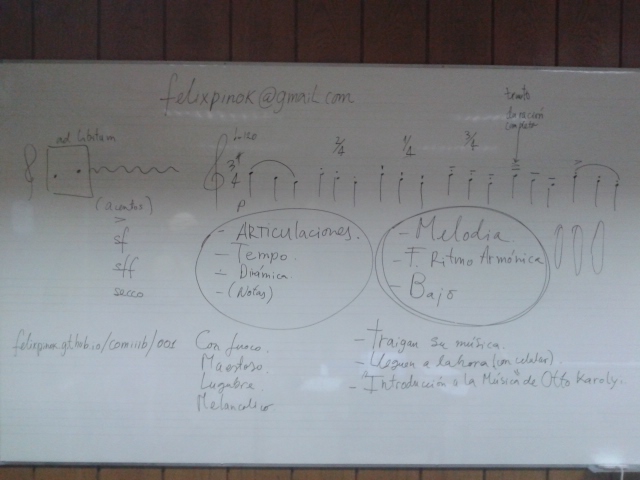 felixpinok@gmail.com
ad libitum
(acentos)
>
sf
sff
secco
L=120
3/4
P
2/4
1/4
3/4
duración
completa
- ARTICULACIONES.
- Tempo.
- Dinámica.
- (Notas)
- Melodia
- F. Ritmo Armónica
- Bajo
felixpinok.github.io/comiiib/001
Con fuoco.
Maestoso.
Lugubre.
Melancolico.
- Traigan su música.
- Lleguen a la hora (con celular).
- "Introducción a la Música" de Otto Karoly.